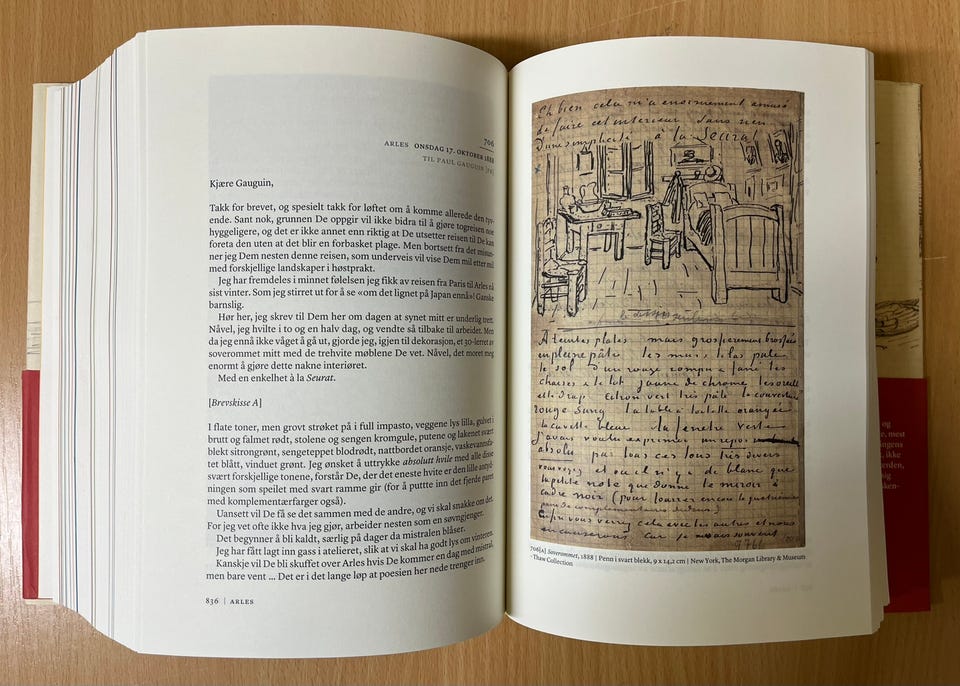 706
ARLES ONSDAG 17. OKTOBER 1888
TIL PAUL GAUGUIN [FR]
Kjære Gauguin,
Takk for brevet, og spesielt takk for løftet om å komme allerede den tyv-
ende. Sant nok, grunnen De oppgir vil ikke bidra til å gjøre togreisen noe
hyggeligere, og det er ikke annet enn riktig at De utsetter reisen til De kan
foreta den uten at det blir en forbasket plage. Men bortsett fra det misun-
ner jeg Dem nesten denne reisen, som underveis vil vise Dem mil etter mil
med forskjellige landskaper i høstprakt.
Jeg har fremdeles i minnet følelsen jeg fikk av reisen fra Paris til Arles nå
sist vinter. Som jeg stirret ut for å se «om det lignet på Japan ennå»! Ganske
barnslig.
Hør her, jeg skrev til Dem her om dagen at synet mitt er underlig trett.
Nåvel, jeg hvilte i to og en halv dag, og vendte så tilbake til arbeidet. Men
da jeg ennå ikke våget å gå ut, gjorde jeg, igjen til dekorasjon, et 30-lerret av
soverommet mitt med de trehvite møblene De vet. Nåvel, det moret meg
enormt å gjøre dette nakne interiøret.
Med en enkelhet à la Seurat.
[Brevskisse A]
I flate toner, men grovt strøket på i full impasto, veggene lys lilla, gulvet i
brutt og falmet rødt, stolene og sengen kromgule, putene og lakenet svært
blekt sitrongrønt, sengeteppet blodrødt, nattbordet oransje, vaskevannsfa-
tet blått, vinduet grønt. Jeg ønsket å uttrykke absolutt hvile med alle disse
svært forskjellige tonene, forstår De, der det eneste hvite er den lille antyd-
ningen som speilet med svart ramme gir (for å puttte inn det fjerde paret
med komplementærfarger også).
Uansett vil De få se det sammen med de andre, og vi skal snakke om det.
For jeg vet ofte ikke hva jeg gjør, arbeider nesten som en søvngjenger.
Det begynner å bli kaldt, særlig på dager da mistralen blåser.
Jeg har fått lagt inn gass i atelieret, slik at vi skal ha godt lys om vinteren.
Kanskje vil De bli skuffet over Arles hvis De kommer en dag med mistral,
men bare vent ... Det er i det lange løp at poesien her nede trenger inn.
836 | ARLES
Eh bien cela m'a enormement amusé
de faire cet interieur sans rien
D'une simplicité à la Seurat
À teintes plates mais grossierement brossées
en pleine pâte les murs lilas pale
le sol d'un rouge rompu & fané les
chaises & le lit jaune de chrome les oreillers
et le drap citron vert très pâle la couverture
rouge sang la table à toilette orangée
la cuvette bleue la fenetre verte
J'avais voulu exprimer un repos
absolu par tous ces tons très divers
vous voyez et où il n'y a de blanc que
la petite note que donne le miroir à
cadre noir (pour fourrer encore la quatrième
paire de complementaires dedans)
Enfin vous verrez cela avec les autres et nous
en causerons car je ne sais souvent
706[A] Soverommet, 1888 | Penn i svart blekk, 9 x 14,2 cm | New York, The Morgan Library & Museum
· Thaw Collection
og
, mest
ngens
, ikke
erden,
sig
sken-